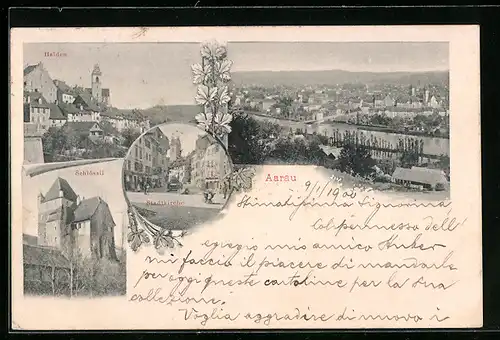 Halden
Schlössli
Stadtkirche
Aarau
9/1/1900
Stimatissima Signorina
Col permesso dell'
egregio mio amico Huber
mi faccio il piacere di mandarle
per oggi queste cartoline per la sua
collezione.
Voglia aggradire di nuovo i